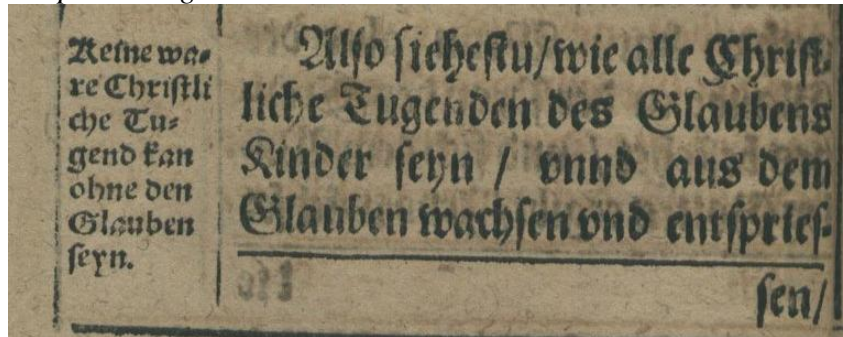 Keine wa-
re Christli
che Tu-
gend kan
ohne den
Glauben
seyn.
Also siehestu/wie alle Christ-
liche Tugenden des Glaubens
Kinder seyn / vnnd aus dem
Glauben wachsen vnd entspries-
sen/